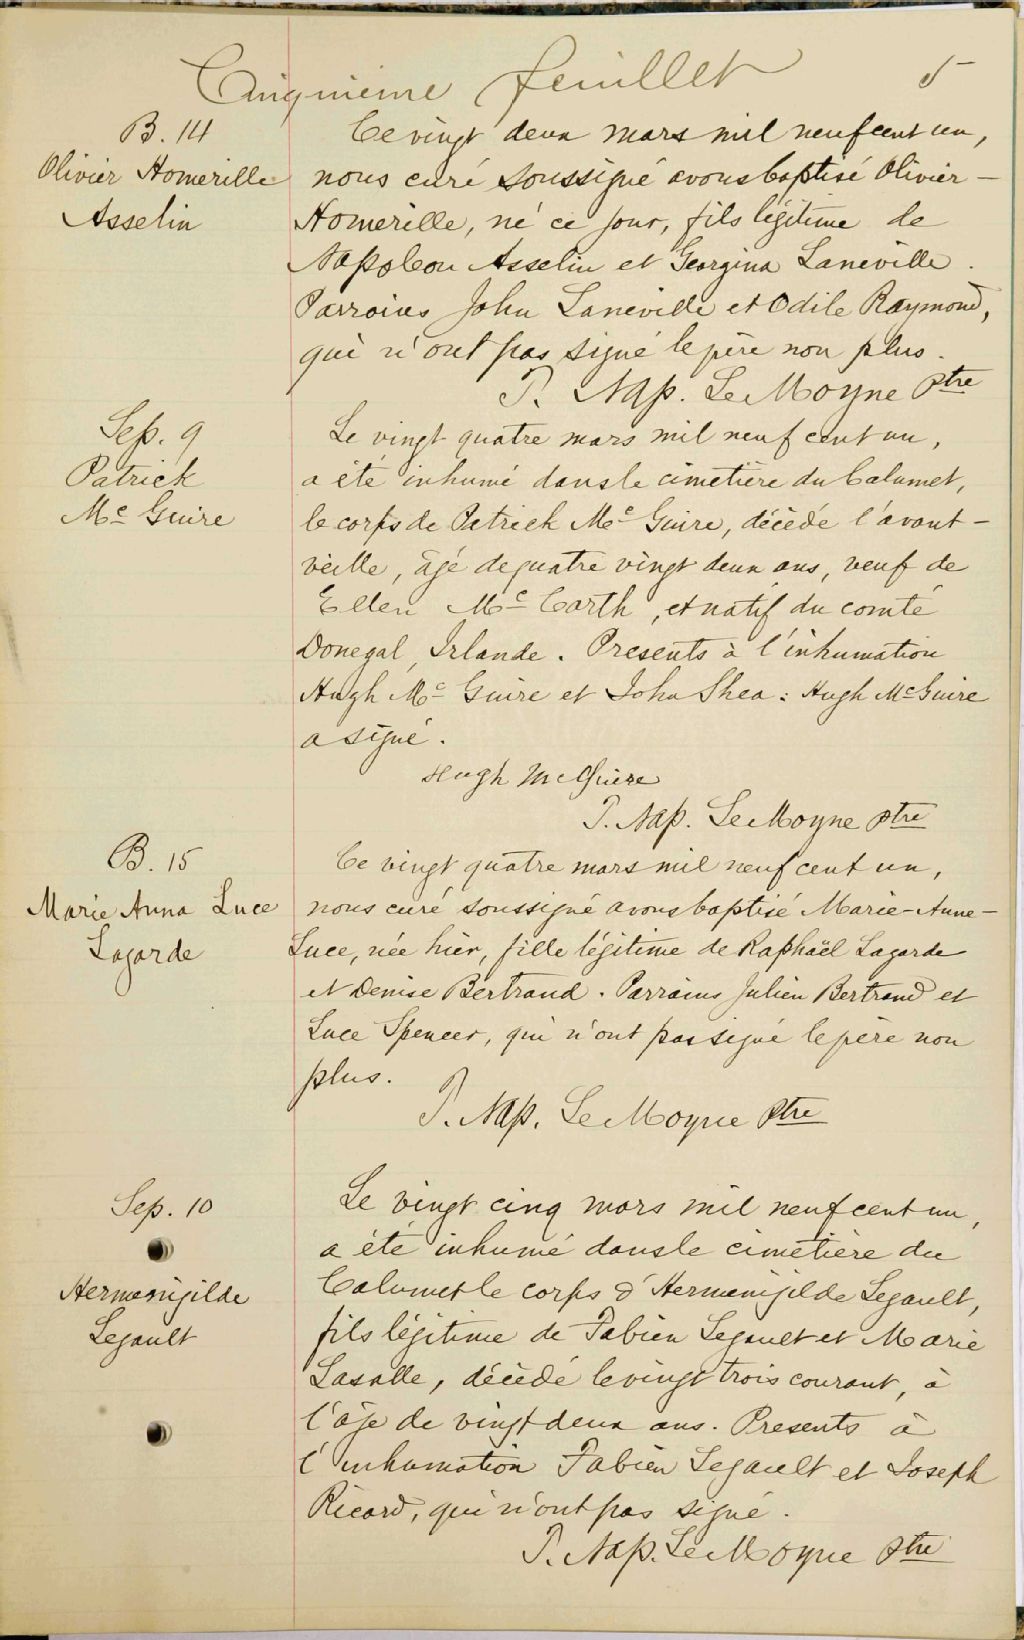 Cinquieme feuillet 5
B. 14
Olivier Homerille
Asselin
Ce vingt deux mars mil neuf cent un,
nous curé soussigné avons baptisé Olivier-
Homerille, né ce jour, fils légitime de
Napoleon Asselin et Georgina Laneville.
Parrains John Laneville et Odile Raymond,
qui n'ont pas signé le père non plus.
P. Nap. LeMoyne Ptre
Sep. 9
Patrick
Mc Guire
Le vingt quatre mars mil neuf cent un,
a été inhumé dans le cimetière du Calumet,
le corps de Patrick Mc Guire, décédé l'avant-
veille, âgé de quatre vingt deux ans, veuf de
Ellen Mc Carth, et natif du comté
Donegal, Irlande. Presents à l'inhumation
Hugh Mc Guire et John Shea: Hugh McGuire
a signé.
Hugh McGuire
P. Nap. LeMoyne Ptre
B. 15
Marie Anna Luce
Lagarde
Ce vingt quatre mars mil neuf cent un,
nous curé soussigné avons baptisé Marie-Anne-
Luce, née hier, fille légitime de Raphaël Lagarde
et Denise Bertrand. Parrains Julien Bertrand et
Luce Spencer, qui n'ont pas signé le père non
plus.
P. Nap. LeMoyne Ptre
Sep. 10
Hermenigilde
Legault
Le vingt cinq mars mil neuf cent un,
a été inhumé dans le cimetière du
Calumet le corps d'Hermenigilde Legault,
fils légitime de Fabien Legault et Marie
Lasalle, décédé le vingt trois courant, à
l'âge de vingt deux ans. Presents à
l'inhumation Fabien Legault et Joseph
Ricard, qui n'ont pas signé.
P. Nap. LeMoyne Ptre